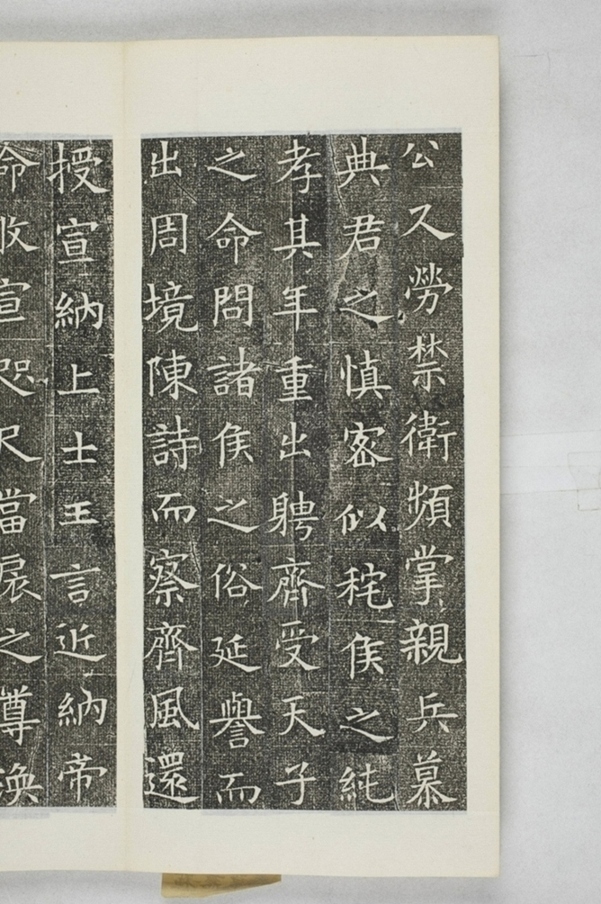 公又勞禁衛頻掌親兵慕
典君之慎密似秺侯之純
孝其年重出聘齊受天子
之命問諸侯之俗延譽而
出周境陳詩而察齊風還
授宣納上士王言近納帝
命攸宣咫尺當扆之尊渙